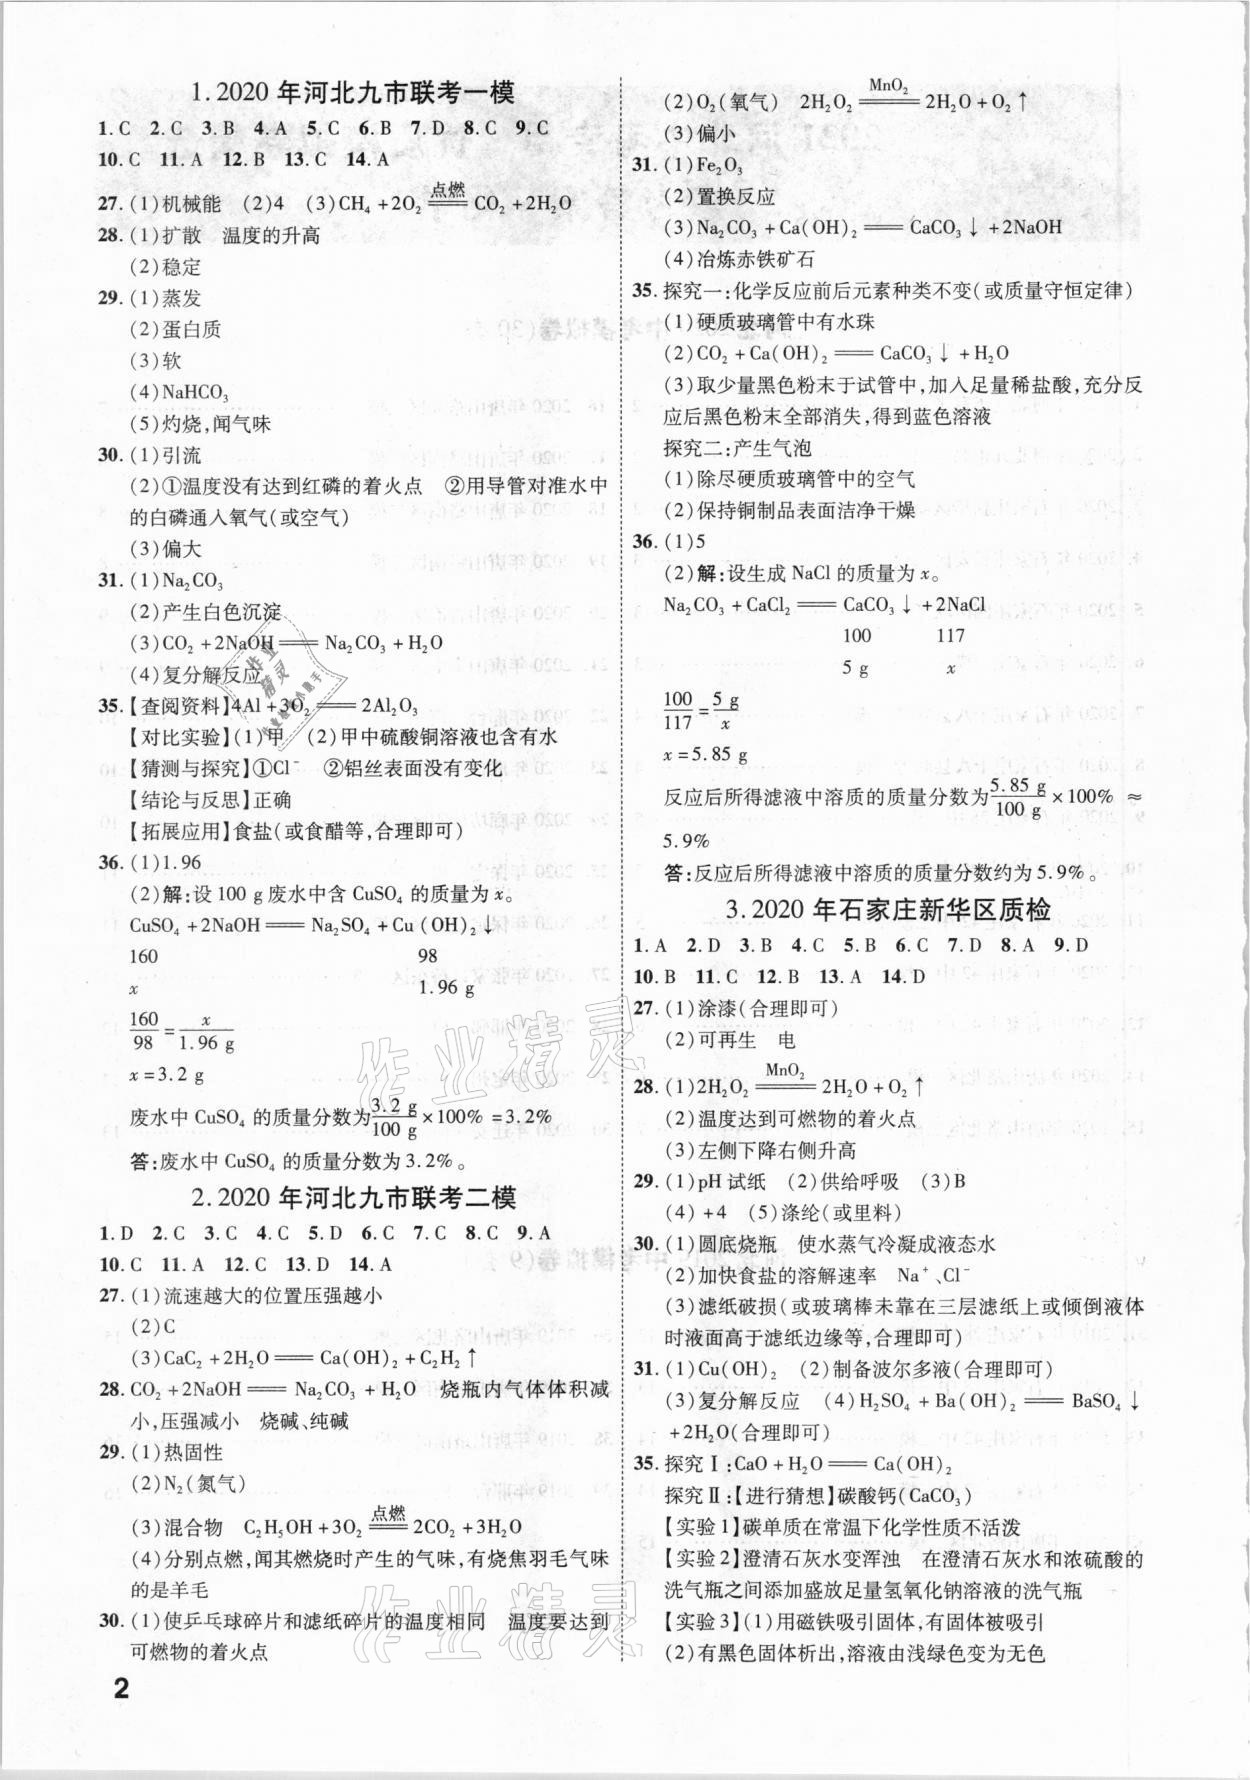 1.2020年河北九市联考一模
1.C 2.C 3.B 4.A 5.C 6.B 7.D 8.C 9.C
10.C 11.A 12.B 13.C 14.A
27.(1)机械能 (2)4 (3)CH₄+2O₂ =点燃= CO₂+2H₂O
28.(1)扩散 温度的升高
(2)稳定
29.(1)蒸发
(2)蛋白质
(3)软
(4)NaHCO₃
(5)灼烧,闻气味
30.(1)引流
(2)①温度没有达到红磷的着火点 ②用导管对准水中
的白磷通入氧气(或空气)
(3)偏大
31.(1)Na₂CO₃
(2)产生白色沉淀
(3)CO₂+2NaOH══Na₂CO₃+H₂O
(4)复分解反应
35.【查阅资料】4Al+3O₂══2Al₂O₃
【对比实验】(1)甲 (2)甲中硫酸铜溶液也含有水
【猜测与探究】①Cl⁻ ②铝丝表面没有变化
【结论与反思】正确
【拓展应用】食盐(或食醋等,合理即可)
36.(1)1.96
(2)解:设100 g废水中含CuSO₄的质量为x。
CuSO₄+2NaOH══Na₂SO₄+Cu(OH)₂↓
160 98
x 1.96 g
160/98=x/1.96 g
x=3.2 g
废水中CuSO₄的质量分数为3.2 g/100 g×100%=3.2%
答:废水中CuSO₄的质量分数为3.2%。
2.2020年河北九市联考二模
1.D 2.C 3.C 4.C 5.D 6.C 7.C 8.C 9.A
10.C 11.A 12.C 13.D 14.A
27.(1)流速越大的位置压强越小
(2)C
(3)CaC₂+2H₂O══Ca(OH)₂+C₂H₂↑
28.CO₂+2NaOH══Na₂CO₃+H₂O 烧瓶内气体体积减
小,压强减小 烧碱、纯碱
29.(1)热固性
(2)N₂(氮气)
(3)混合物 C₂H₅OH+3O₂ =点燃= 2CO₂+3H₂O
(4)分别点燃,闻其燃烧时产生的气味,有烧焦羽毛气味
的是羊毛
30.(1)使乒乓球碎片和滤纸碎片的温度相同 温度要达到
可燃物的着火点
2
(2)O₂(氧气) 2H₂O₂ =MnO₂= 2H₂O+O₂↑
(3)偏小
31.(1)Fe₂O₃
(2)置换反应
(3)Na₂CO₃+Ca(OH)₂══CaCO₃↓+2NaOH
(4)冶炼赤铁矿石
35.探究一:化学反应前后元素种类不变(或质量守恒定律)
(1)硬质玻璃管中有水珠
(2)CO₂+Ca(OH)₂══CaCO₃↓+H₂O
(3)取少量黑色粉末于试管中,加入足量稀盐酸,充分反
应后黑色粉末全部消失,得到蓝色溶液
探究二:产生气泡
(1)除尽硬质玻璃管中的空气
(2)保持铜制品表面洁净干燥
36.(1)5
(2)解:设生成NaCl的质量为x。
Na₂CO₃+CaCl₂══CaCO₃↓+2NaCl
100 117
5 g x
100/117=5 g/x
x=5.85 g
反应后所得滤液中溶质的质量分数为5.85 g/100 g×100%≈
5.9%
答:反应后所得滤液中溶质的质量分数约为5.9%。
3.2020年石家庄新华区质检
1.A 2.D 3.B 4.C 5.B 6.C 7.D 8.A 9.D
10.B 11.C 12.B 13.A 14.D
27.(1)涂漆(合理即可)
(2)可再生 电
28.(1)2H₂O₂ =MnO₂= 2H₂O+O₂↑
(2)温度达到可燃物的着火点
(3)左侧下降右侧升高
29.(1)pH试纸 (2)供给呼吸 (3)B
(4)+4 (5)涤纶(或里料)
30.(1)圆底烧瓶 使水蒸气冷凝成液态水
(2)加快食盐的溶解速率 Na⁺、Cl⁻
(3)滤纸破损(或玻璃棒未靠在三层滤纸上或倾倒液体
时液面高于滤纸边缘等,合理即可)
31.(1)Cu(OH)₂ (2)制备波尔多液(合理即可)
(3)复分解反应 (4)H₂SO₄+Ba(OH)₂══BaSO₄↓
+2H₂O(合理即可)
35.探究Ⅰ:CaO+H₂O══Ca(OH)₂
探究Ⅱ:【进行猜想】碳酸钙(CaCO₃)
【实验1】碳单质在常温下化学性质不活泼
【实验2】澄清石灰水变浑浊 在澄清石灰水和浓硫酸的
洗气瓶之间添加盛放足量氢氧化钠溶液的洗气瓶
【实验3】(1)用磁铁吸引固体,有固体被吸引
(2)有黑色固体析出,溶液由浅绿色变为无色
作业精灵
作业精灵
作业精灵